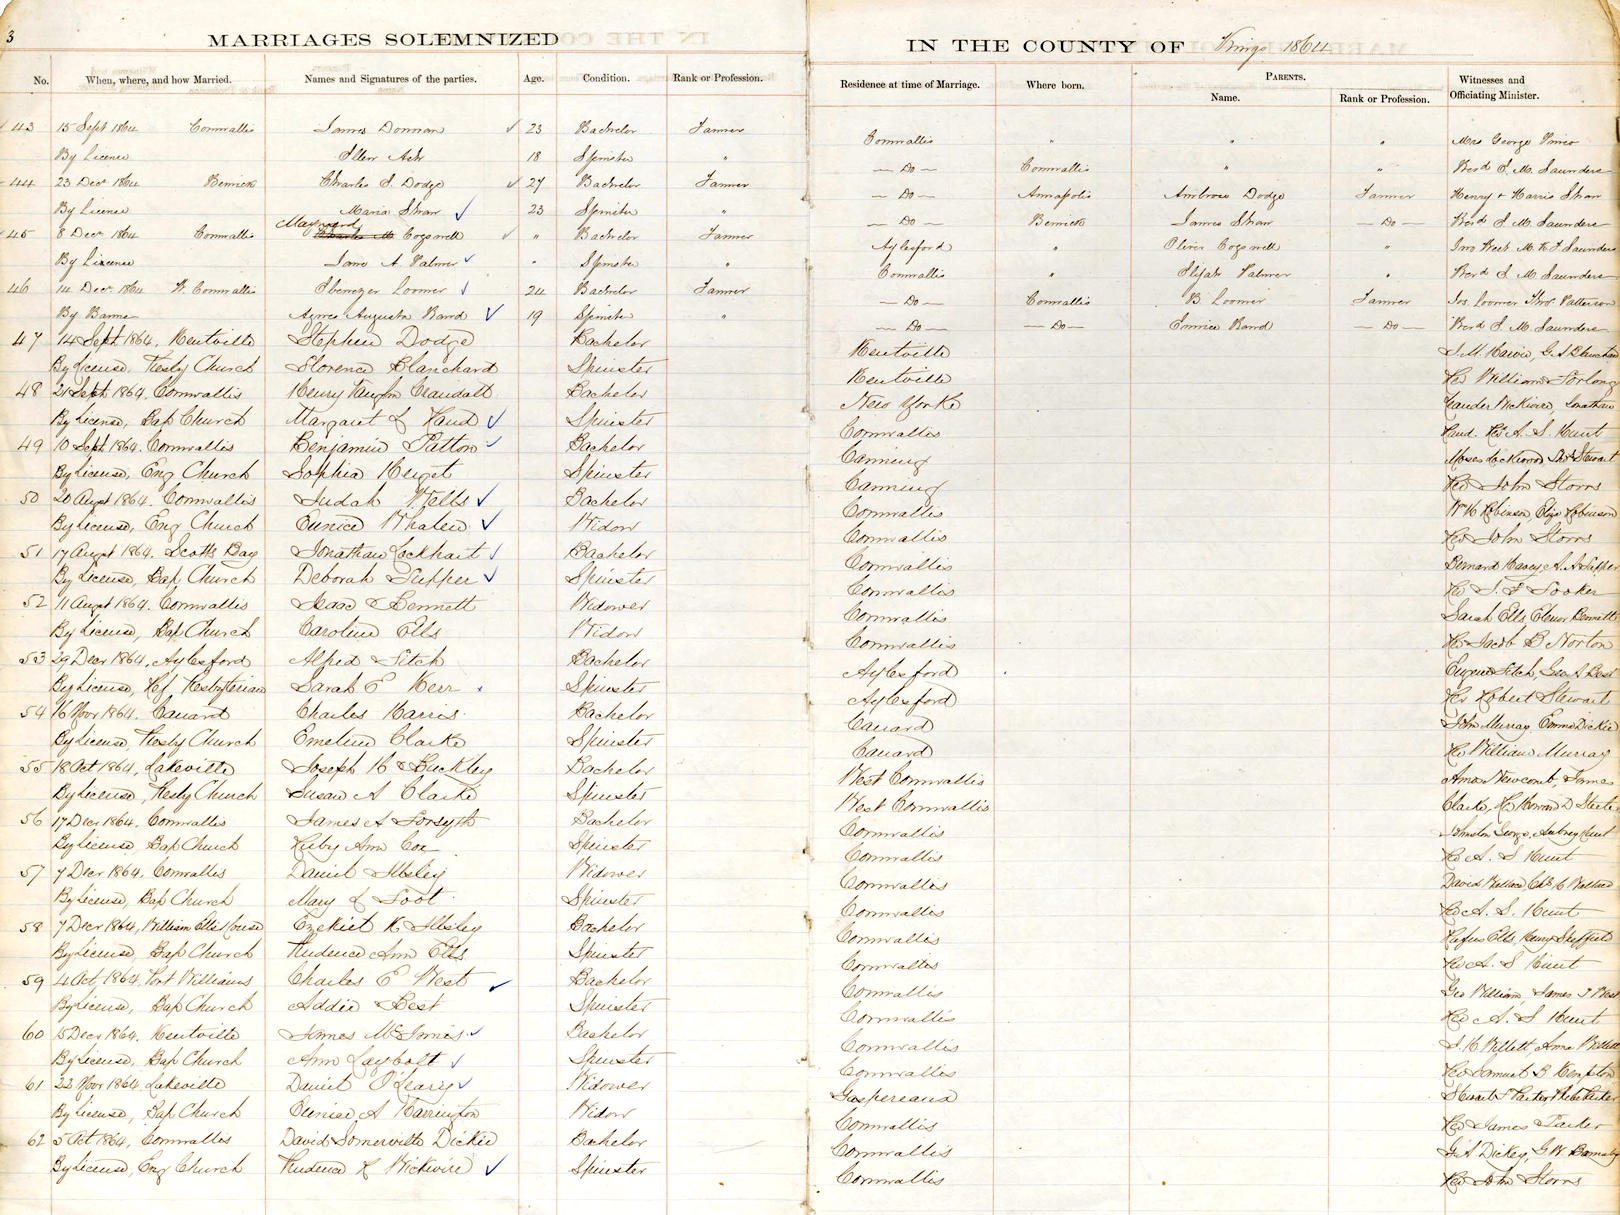 3
MARRIAGES SOLEMNIZED
IN THE COUNTY OF Kings 1864
No. When, where, and how Married. Names and Signatures of the parties. Age. Condition. Rank or Profession.
Residence at time of Marriage. Where born. PARENTS. Name. Rank or Profession. Witnesses and Officiating Minister.
43 15 Sept 1864 Cornwallis James Donnan 23 Bachelor Farmer Cornwallis " " " Mrs George
By License Ellen 18 Spinster " — Do — Cornwallis " " Revd E. M. Saunders
44 23 Decr 1864 Berwick Charles I. Dodge 27 Bachelor Farmer — Do — Annapolis Ambrose Dodge Farmer Henry + Harris Shaw
By License Maria Shaw 23 Spinster " — Do — Berwick James Shaw — Do — Revd E. M. Saunders
45 8 Decr 1864 Cornwallis Maynard Cogswell " Bachelor Farmer Aylesford " Oliver Cogswell " M. K. Saunders
By License Jane A. Palmer " Spinster " Cornwallis " Elijah Palmer " Revd E. M. Saunders
46 14 Decr 1864 W. Cornwallis Ebenezer Loomer 24 Bachelor Farmer — Do — Cornwallis B Loomer Farmer Jos. Loomer Thos Patterson
By Banns Agnes Augusta Rand 19 Spinster " — Do — — Do — Rand — Do — Revd E. M. Saunders
47 14 Sept 1864, Kentville Stephen Dodge Bachelor Kentville
By License, Presby Church Florence Blanchard Spinster Kentville Rev William Forlong
48 21 Sept 1864, Cornwallis Henry Crandall Bachelor New Yorke Jonathan
By License, Bap Church Margaret J Rand Spinster Cornwallis Rand. Rev A. S. Hunt
49 10 Sept 1864 Cornwallis Benjamin Patton Bachelor Canning Moses Lockwood Stewart
By License, Eng Church Sophia Spinster Canning Rev John Storrs
50 20 August 1864. Cornwallis Judah Wells Bachelor Cornwallis Wm H Robinson, Eliza Robinson
By License, Eng Church Eunice Whalen Widow Cornwallis Rev John Storrs
51 17 August 1864. Scotts Bay Jonathan Lockhart Bachelor Cornwallis Bernard
By License, Bap Church Deborah Tupper Spinster Cornwallis Rev
52 11 August 1864. Cornwallis Isaac Bennett Widower Cornwallis Sarah Ells, Bennett
By License, Bap Church Caroline Ells Widow Cornwallis Rev Jacob B Norton
53 29 Decr 1864, Aylesford Alfred Fitch Bachelor Aylesford Eugene Fitch, Geo. A Best
By License, Ref Presbyterian Sarah E Kerr Spinster Aylesford Rev Robert Stewart
54 16 Novr 1864. Canard Charles Harris Bachelor Canard John Murray Emma Dickie
By License, Presby Church Emeline Clarke Spinster Canard Rev William Murray
55 18 Oct 1864, Lakeville Joseph H Buckley Bachelor West Cornwallis Amos Newcomb, James
By License, Presby Church Susan A Clarke Spinster West Cornwallis Clarke, Rev Howard D Steele
56 17 Decr 1864. Cornwallis James A Forsyth Bachelor Cornwallis Johnston George, Aubrey Hunt
By License Bap Church Ruby Ann Coe Spinster Cornwallis Rev A. S Hunt
57 7 Decr 1864. Cornwallis Daniel Illsley Widower Cornwallis David
By License, Bap Church Mary J Foot Spinster Cornwallis Rev A. S. Hunt
58 7 Decr 1864, William Ells House Ezekiel K Illsley Bachelor Cornwallis Rufus Ells, Henry Sheffield
By License, Bap Church Prudence Ann Ells Spinster Cornwallis Rev A. S Hunt
59 4 Oct, 1864, Port Williams Charles E West Bachelor Cornwallis Geo William, James
By License, Bap Church Addie Best Spinster Cornwallis Rev A. S Hunt
60 15 Decr 1864. Kentville James McInnis Bachelor Cornwallis Willett
By License, Bap Church Ann Laybolt Spinster Cornwallis Rev Samuel B Kempton
61 22 Novr 1864 Lakeville Daniel O'Leary Widower Gaspereaux
By License, Bap Church Eunice A Harrington Widow Cornwallis Rev James Parker
62 5 Oct 1864, Cornwallis David Somerville Dickie Bachelor Cornwallis Dickey, G W Barnaby
By License, Eng Church Prudence Wickwire Spinster Cornwallis Rev John Storrs